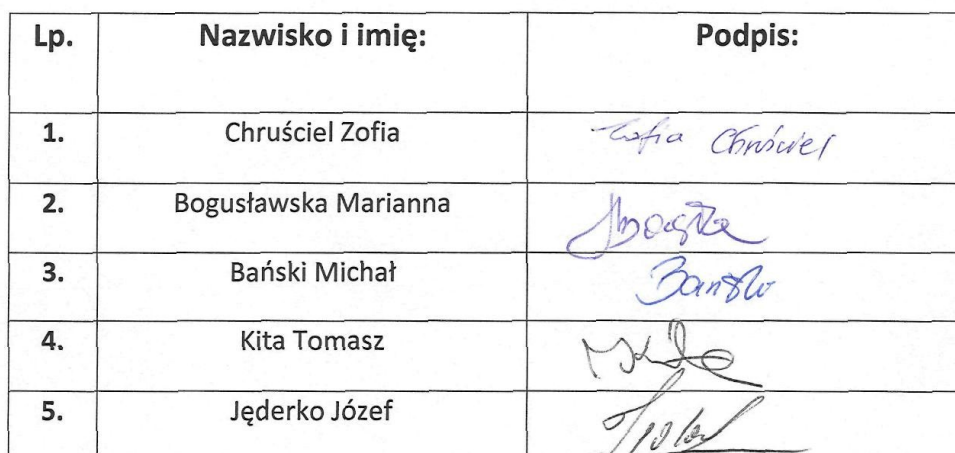 Lp. Nazwisko i imię: Podpis:
1. Chruściel Zofia Zofia Chruściel
2. Bogusławska Marianna
3. Bański Michał Bański
4. Kita Tomasz
5. Jęderko Józef